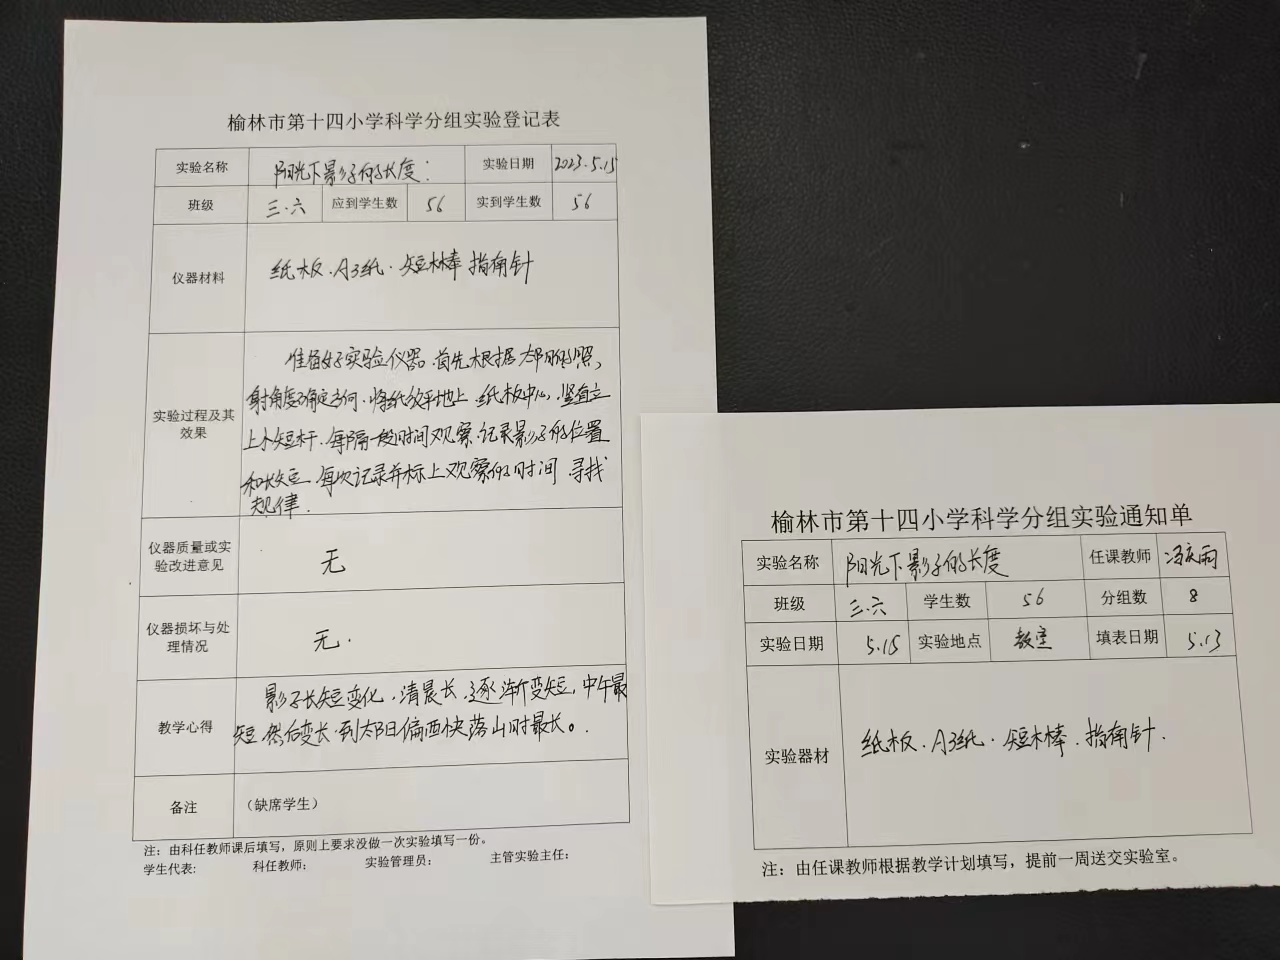 榆林市第十四小学科学分组实验登记表
实验名称 阳光下影子的长度: 实验日期 2023.5.15
班级 三.六 应到学生数 56 实到学生数 56
仪器材料 纸板.A3纸.短木棒 指南针
准备好实验仪器.首先根据太阳的照,
射角度确定方向.将纸放平地上.纸板中心,竖直立
实验过程及其
效果
上小短杆.每隔一段时间观察.记录影子的位置
和长短.每次记录并标上观察的时间 寻找
规律.
仪器质量或实
验改进意见
无
仪器损坏与处
理情况
无.
教学心得
影子长短变化.清晨长.逐渐变短.中午最
短 然后变长.到太阳偏西快落山时最长。.
备注 （缺席学生）
注：由科任教师课后填写，原则上要求没做一次实验填写一份。
学生代表: 科任教师: 实验管理员: 主管实验主任:
榆林市第十四小学科学分组实验通知单
实验名称 阳光下影子的长度 任课教师 冯庆雨
班级 三.六 学生数 56 分组数 8
实验日期 5.15 实验地点 教室 填表日期 5.13
实验器材 纸板.A3纸.短木棒.指南针.
注：由任课教师根据教学计划填写，提前一周送交实验室。